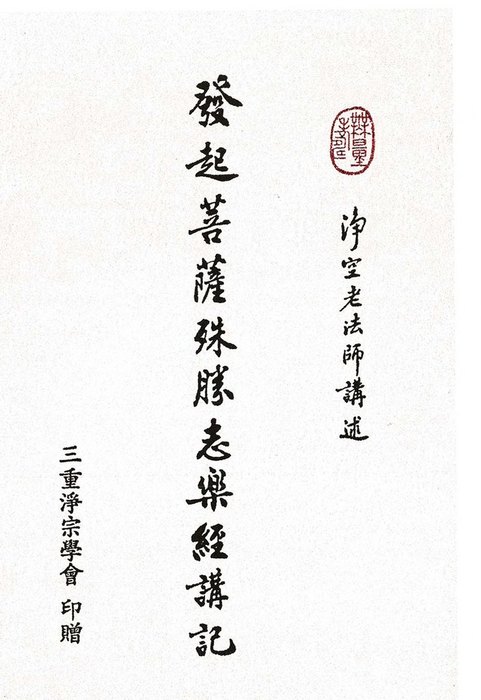 淨空老法師講述
發起菩薩殊勝志樂經講記
三重淨宗學會 印贈